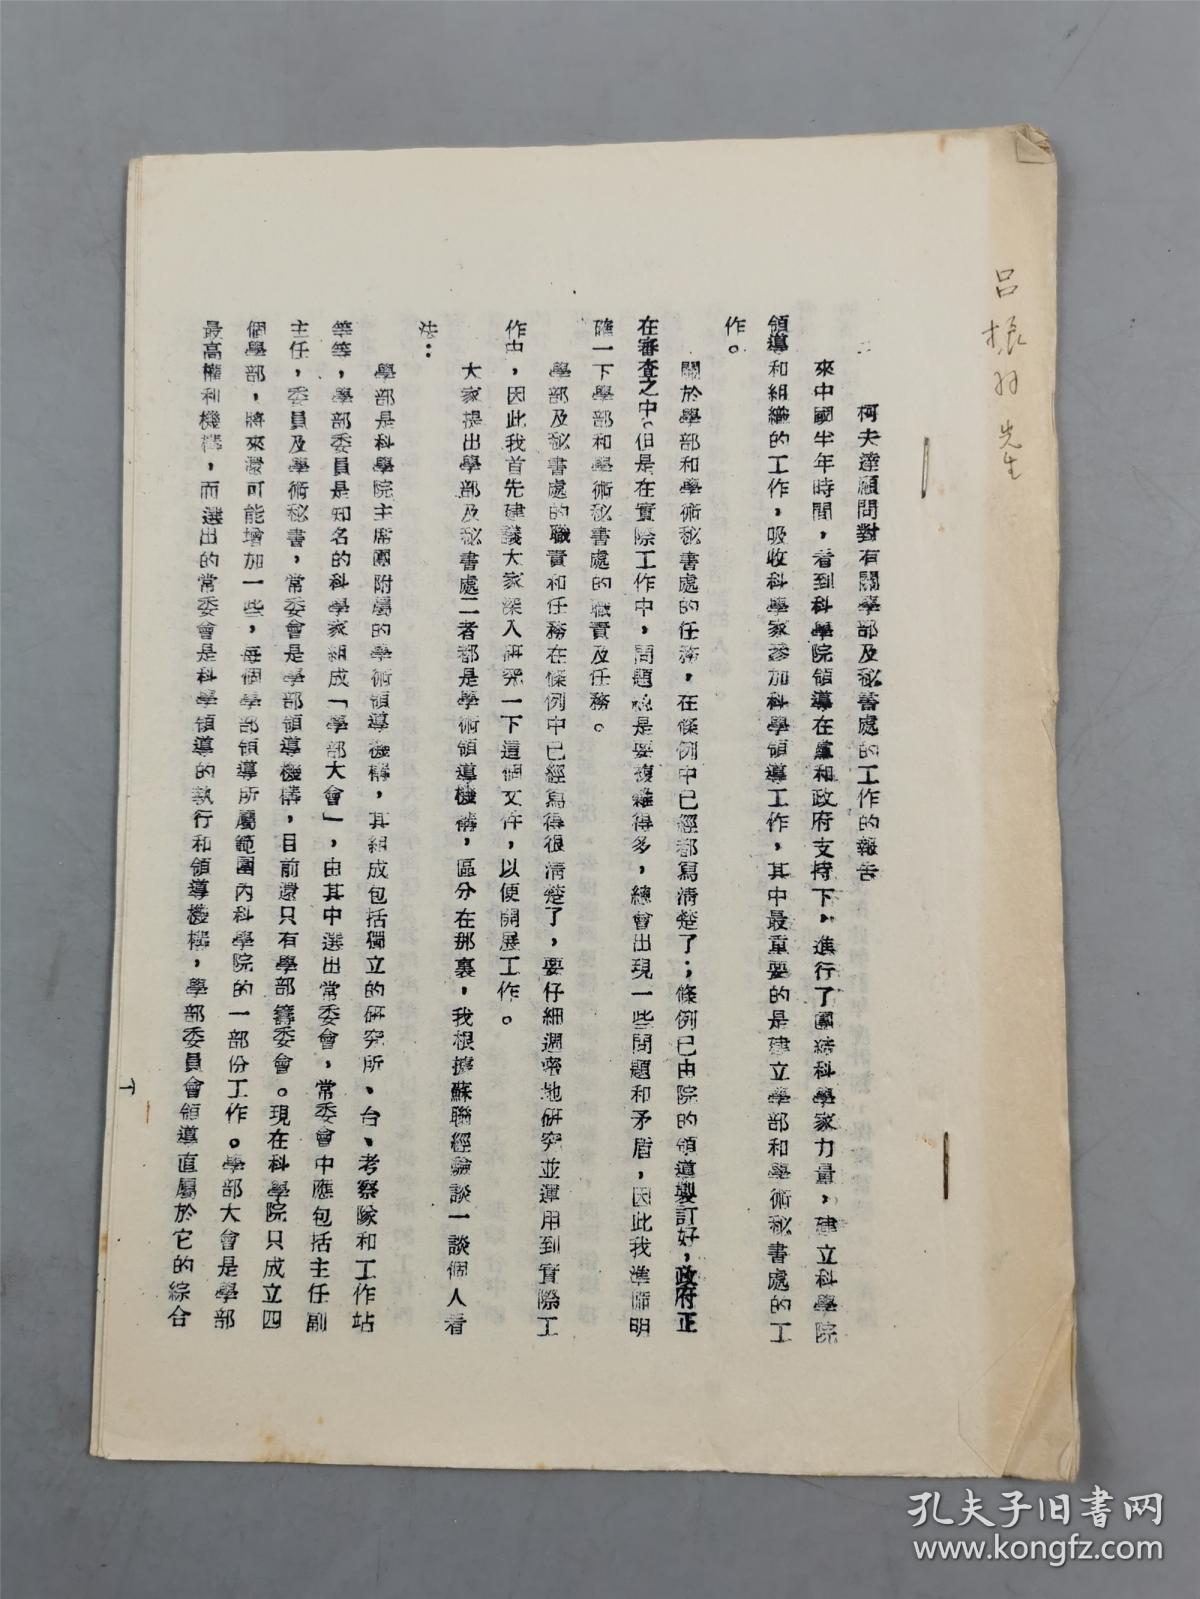 吕振羽先生
柯夫達顧問對有關學部及秘書處的工作的報告
來中國半年時間，看到科學院領導在黨和政府支持下，進行了團結科學家力量，建立科學院
領導和組織的工作，吸收科學家參加科學領導工作，其中最重要的是建立學部和學術秘書處的工
作。
關於學部和學術秘書處的任務，在條例中已經都寫清楚了；條例已由院的領導製訂好，政府正
在審查之中。但是在實際工作中，問題總是要複雜得多，總會出現一些問題和矛盾，因此我準備明
確一下學部和學術秘書處的職責及任務。
學部及秘書處的職責和任務在條例中已經寫得很清楚了，要仔細週密地研究並運用到實際工
作中，因此我首先建議大家深入研究一下這個文件，以便開展工作。
大家提出學部及秘書處二者都是學術領導機構，區分在那裏，我根據蘇聯經驗談一談個人看
法：
學部是科學院主席團附屬的學術領導機構，其組成包括獨立的研究所、台、考察隊和工作站
等等，學部委員是知名的科學家組成「學部大會」，由其中選出常委會，常委會中應包括主任副
主任，委員及學術秘書，常委會是學部領導機構，目前還只有學部籌委會。現在科學院只成立四
個學部，將來還可能增加一些，每個學部領導所屬範圍內科學院的一部份工作。學部大會是學部
最高權利機構，而選出的常委會是科學領導的執行和領導機構，學部委員會領導直屬於它的綜合
孔夫子旧书网
www.kongfz.com